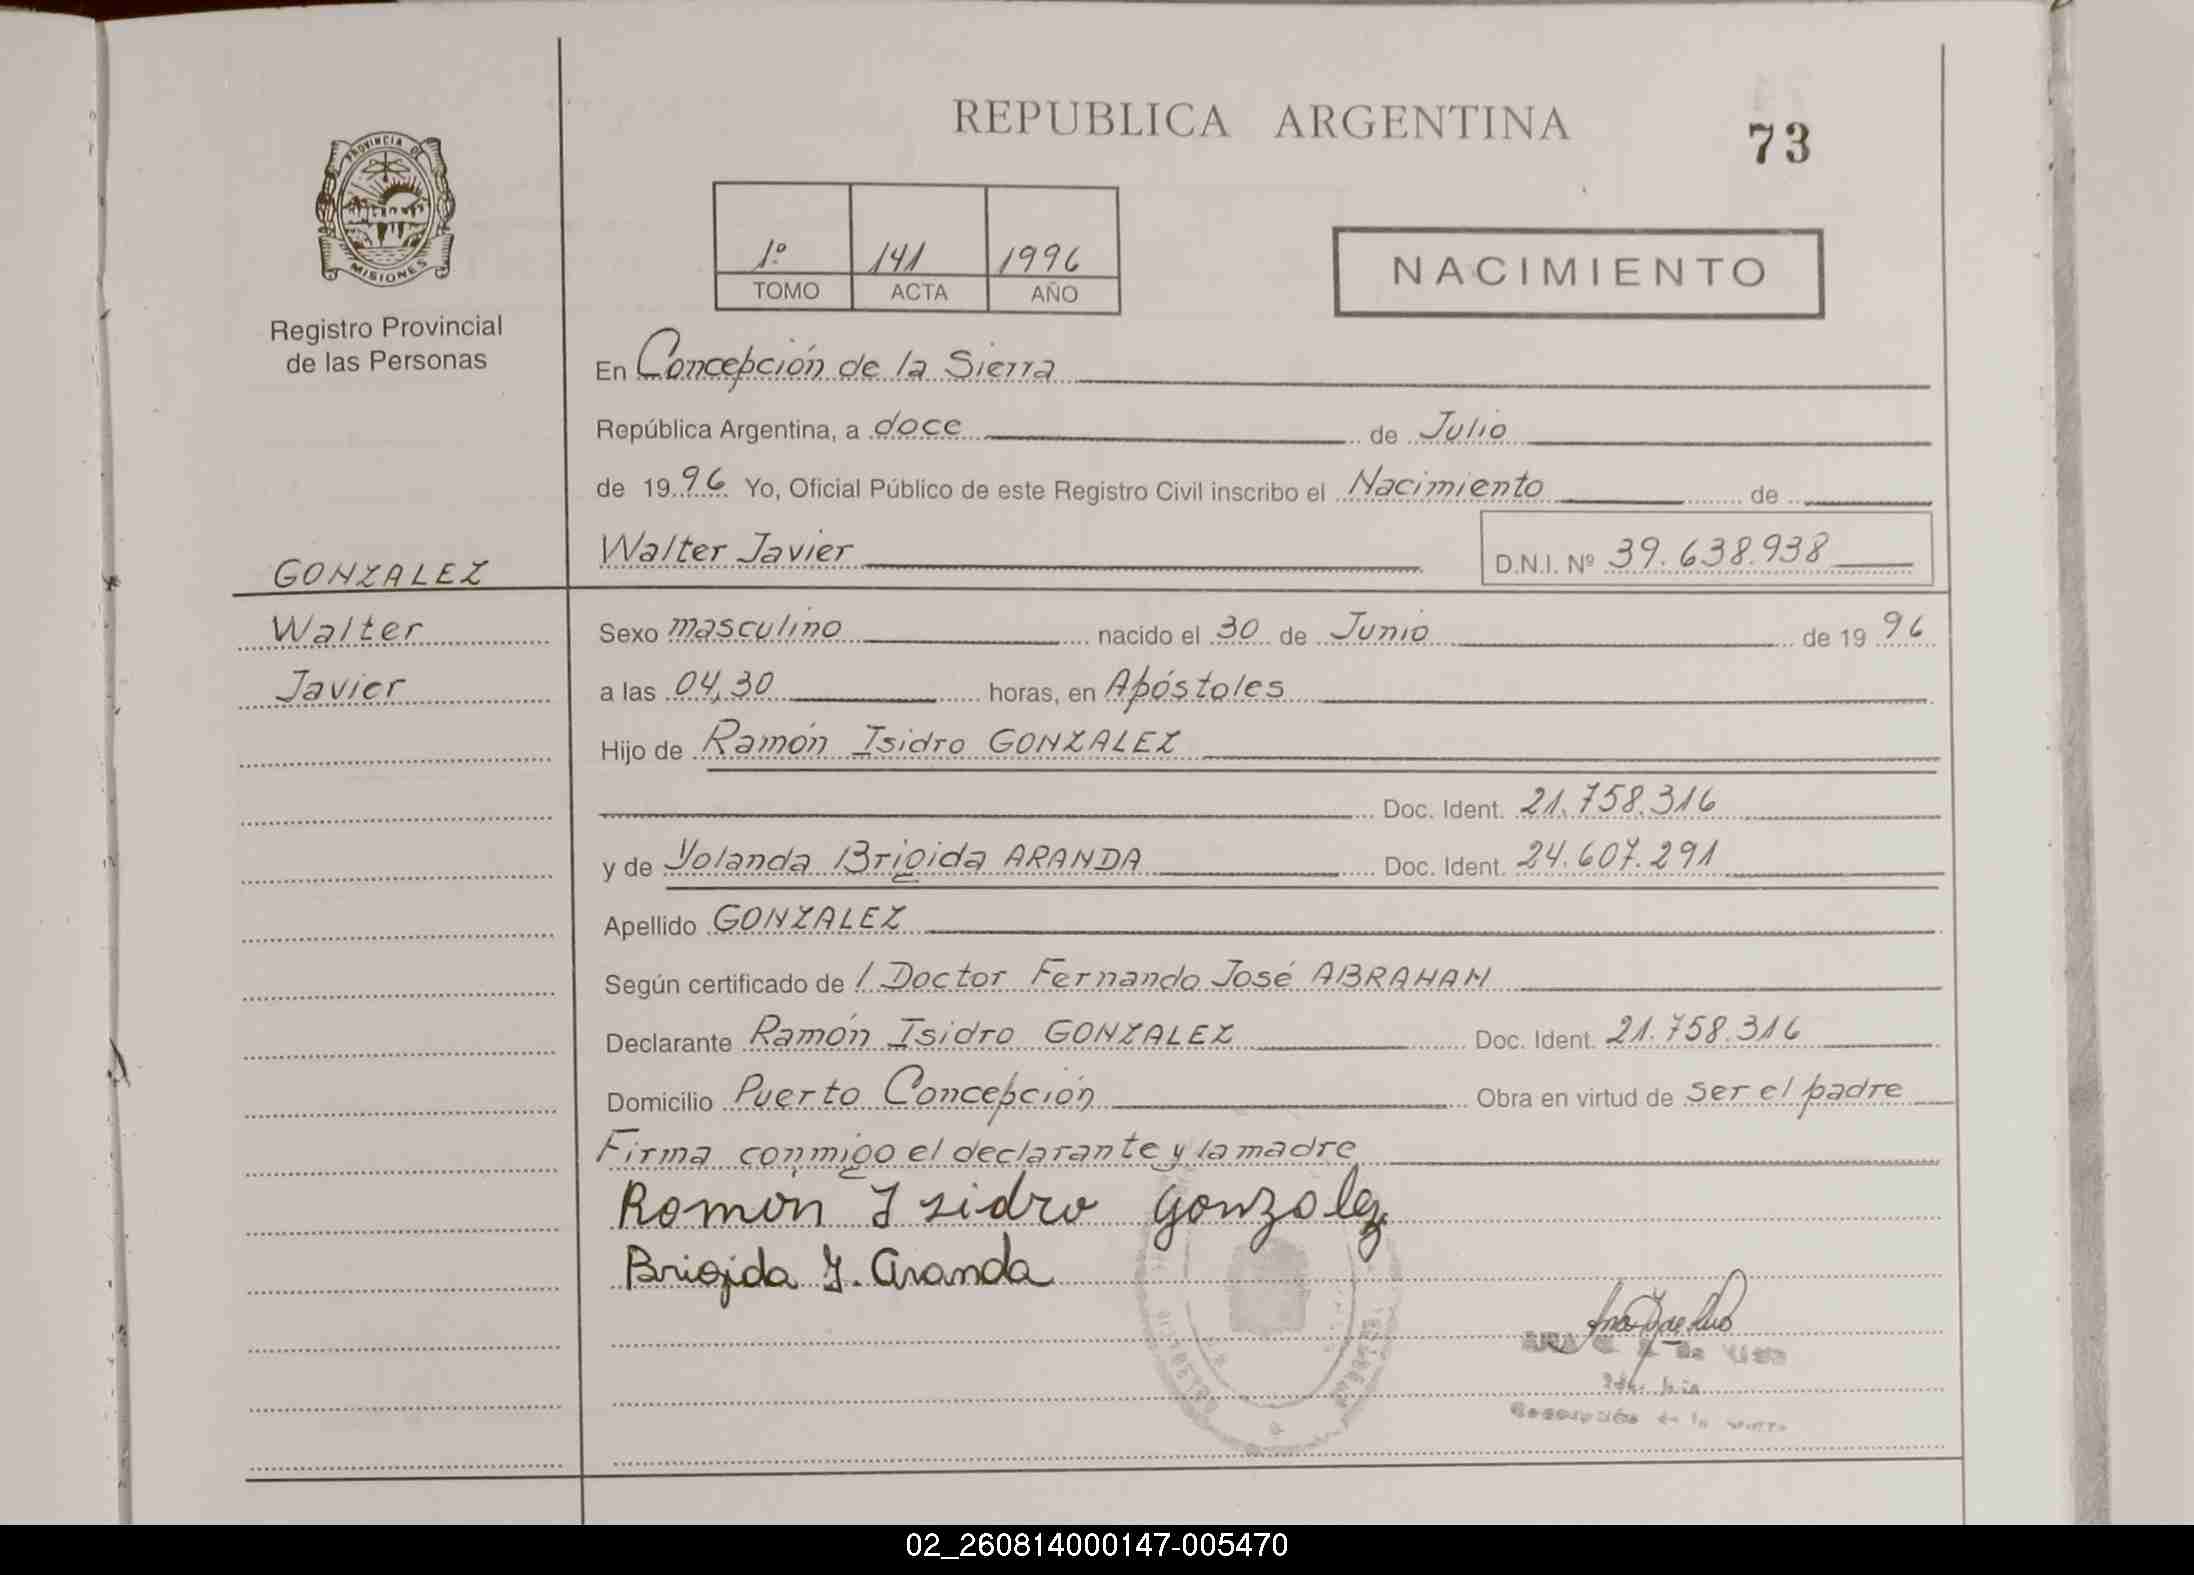 REPUBLICA ARGENTINA
73
PROVINCIA DE
MISIONES
Registro Provincial
de las Personas
1º 141 1996
TOMO ACTA AÑO
NACIMIENTO
En Concepción de la Sierra
República Argentina, a doce de Julio
de 1996 Yo, Oficial Público de este Registro Civil inscribo el Nacimiento de
Walter Javier D.N.I. Nº 39.638.938
GONZALEZ
Walter
Javier
Sexo masculino nacido el 30 de Junio de 1996
a las 04,30 horas, en Apóstoles
Hijo de Ramón Isidro GONZALEZ
Doc. Ident. 21.758.316
y de Yolanda Brigida ARANDA Doc. Ident. 24.607.291
Apellido GONZALEZ
Según certificado de / Doctor Fernando José ABRAHAM
Declarante Ramón Isidro GONZALEZ Doc. Ident. 21.758.316
Domicilio Puerto Concepción Obra en virtud de ser el padre
Firma conmigo el declarante y la madre
Ramón Isidro Gonzalez
Brigida Y. Aranda
Concepción de la Sierra
02_260814000147-005470